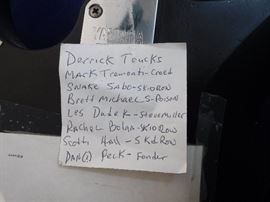 YAMAHA
Derrick Trucks
Mark Tremonti-Creed
Snake Sabo-SKIDROW
Brett Michaels-Poison
Les Dudek-Stevemiller
Rachel Bolan-SKIDROW
Scotti Hill-SKidRow
Dan(?) Peck-Fender